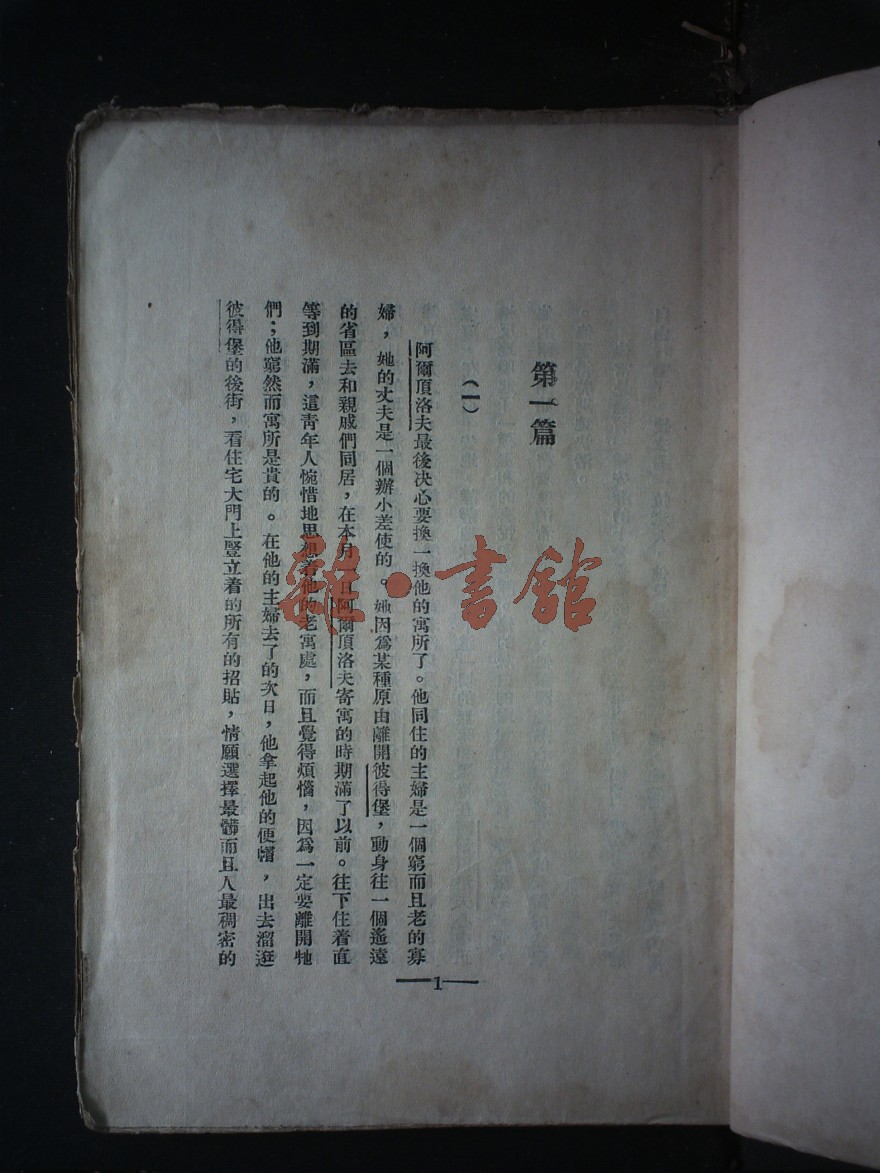 第一篇
（一）
阿爾頂洛夫最後決心要換一換他的寓所了。他同住的主婦是一個窮而且老的寡
婦，她的丈夫是一個辦小差使的。她因爲某種原由離開彼得堡，動身往一個遙遠
的省區去和親戚們同居，在本月一日阿爾頂洛夫寄寓的時期滿了以前。往下住着直
等到期滿，這靑年人惋惜地思想着他的老寓處，而且覺得煩惱，因爲一定要離開牠
們；他窮然而寓所是貴的。在他的主婦去了的次日，他拿起他的便帽，出去溜逛
彼得堡的後街，看住宅大門上豎立着的所有的招貼，情願選擇最髒而且人最稠密的
1
雜·書館